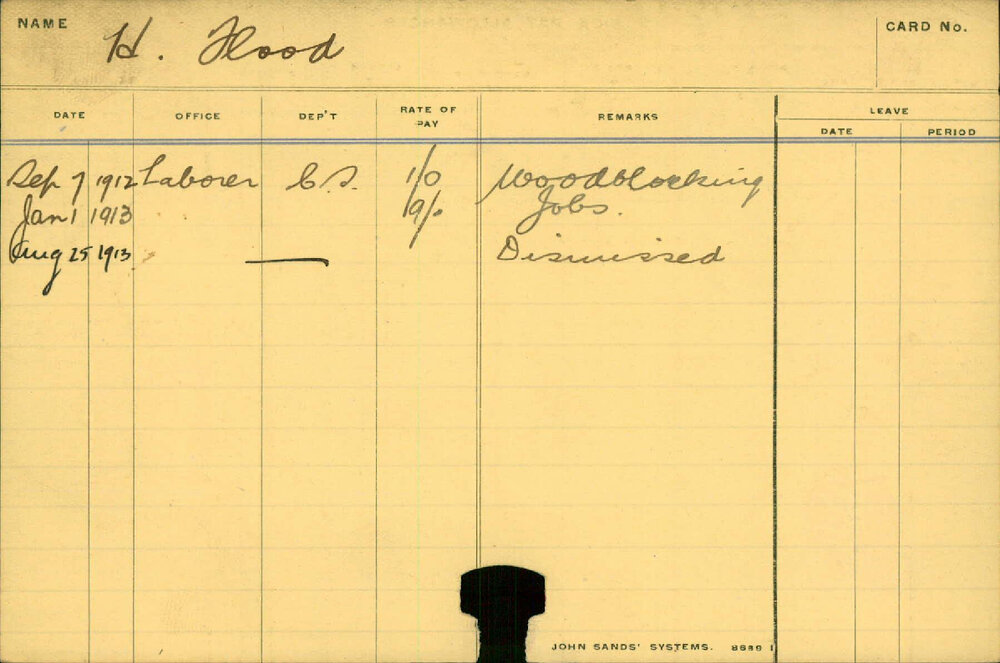 NAME H. Flood CARD No.
DATE OFFICE DEP'T RATE OF PAY REMARKS LEAVE
DATE PERIOD
Sep 7 1912 Laborer C.S. 1/0 Woodblocking
Jan 1 1913 Jobs.
Aug 25 1913 — Dismissed
JOHN SANDS' SYSTEMS.